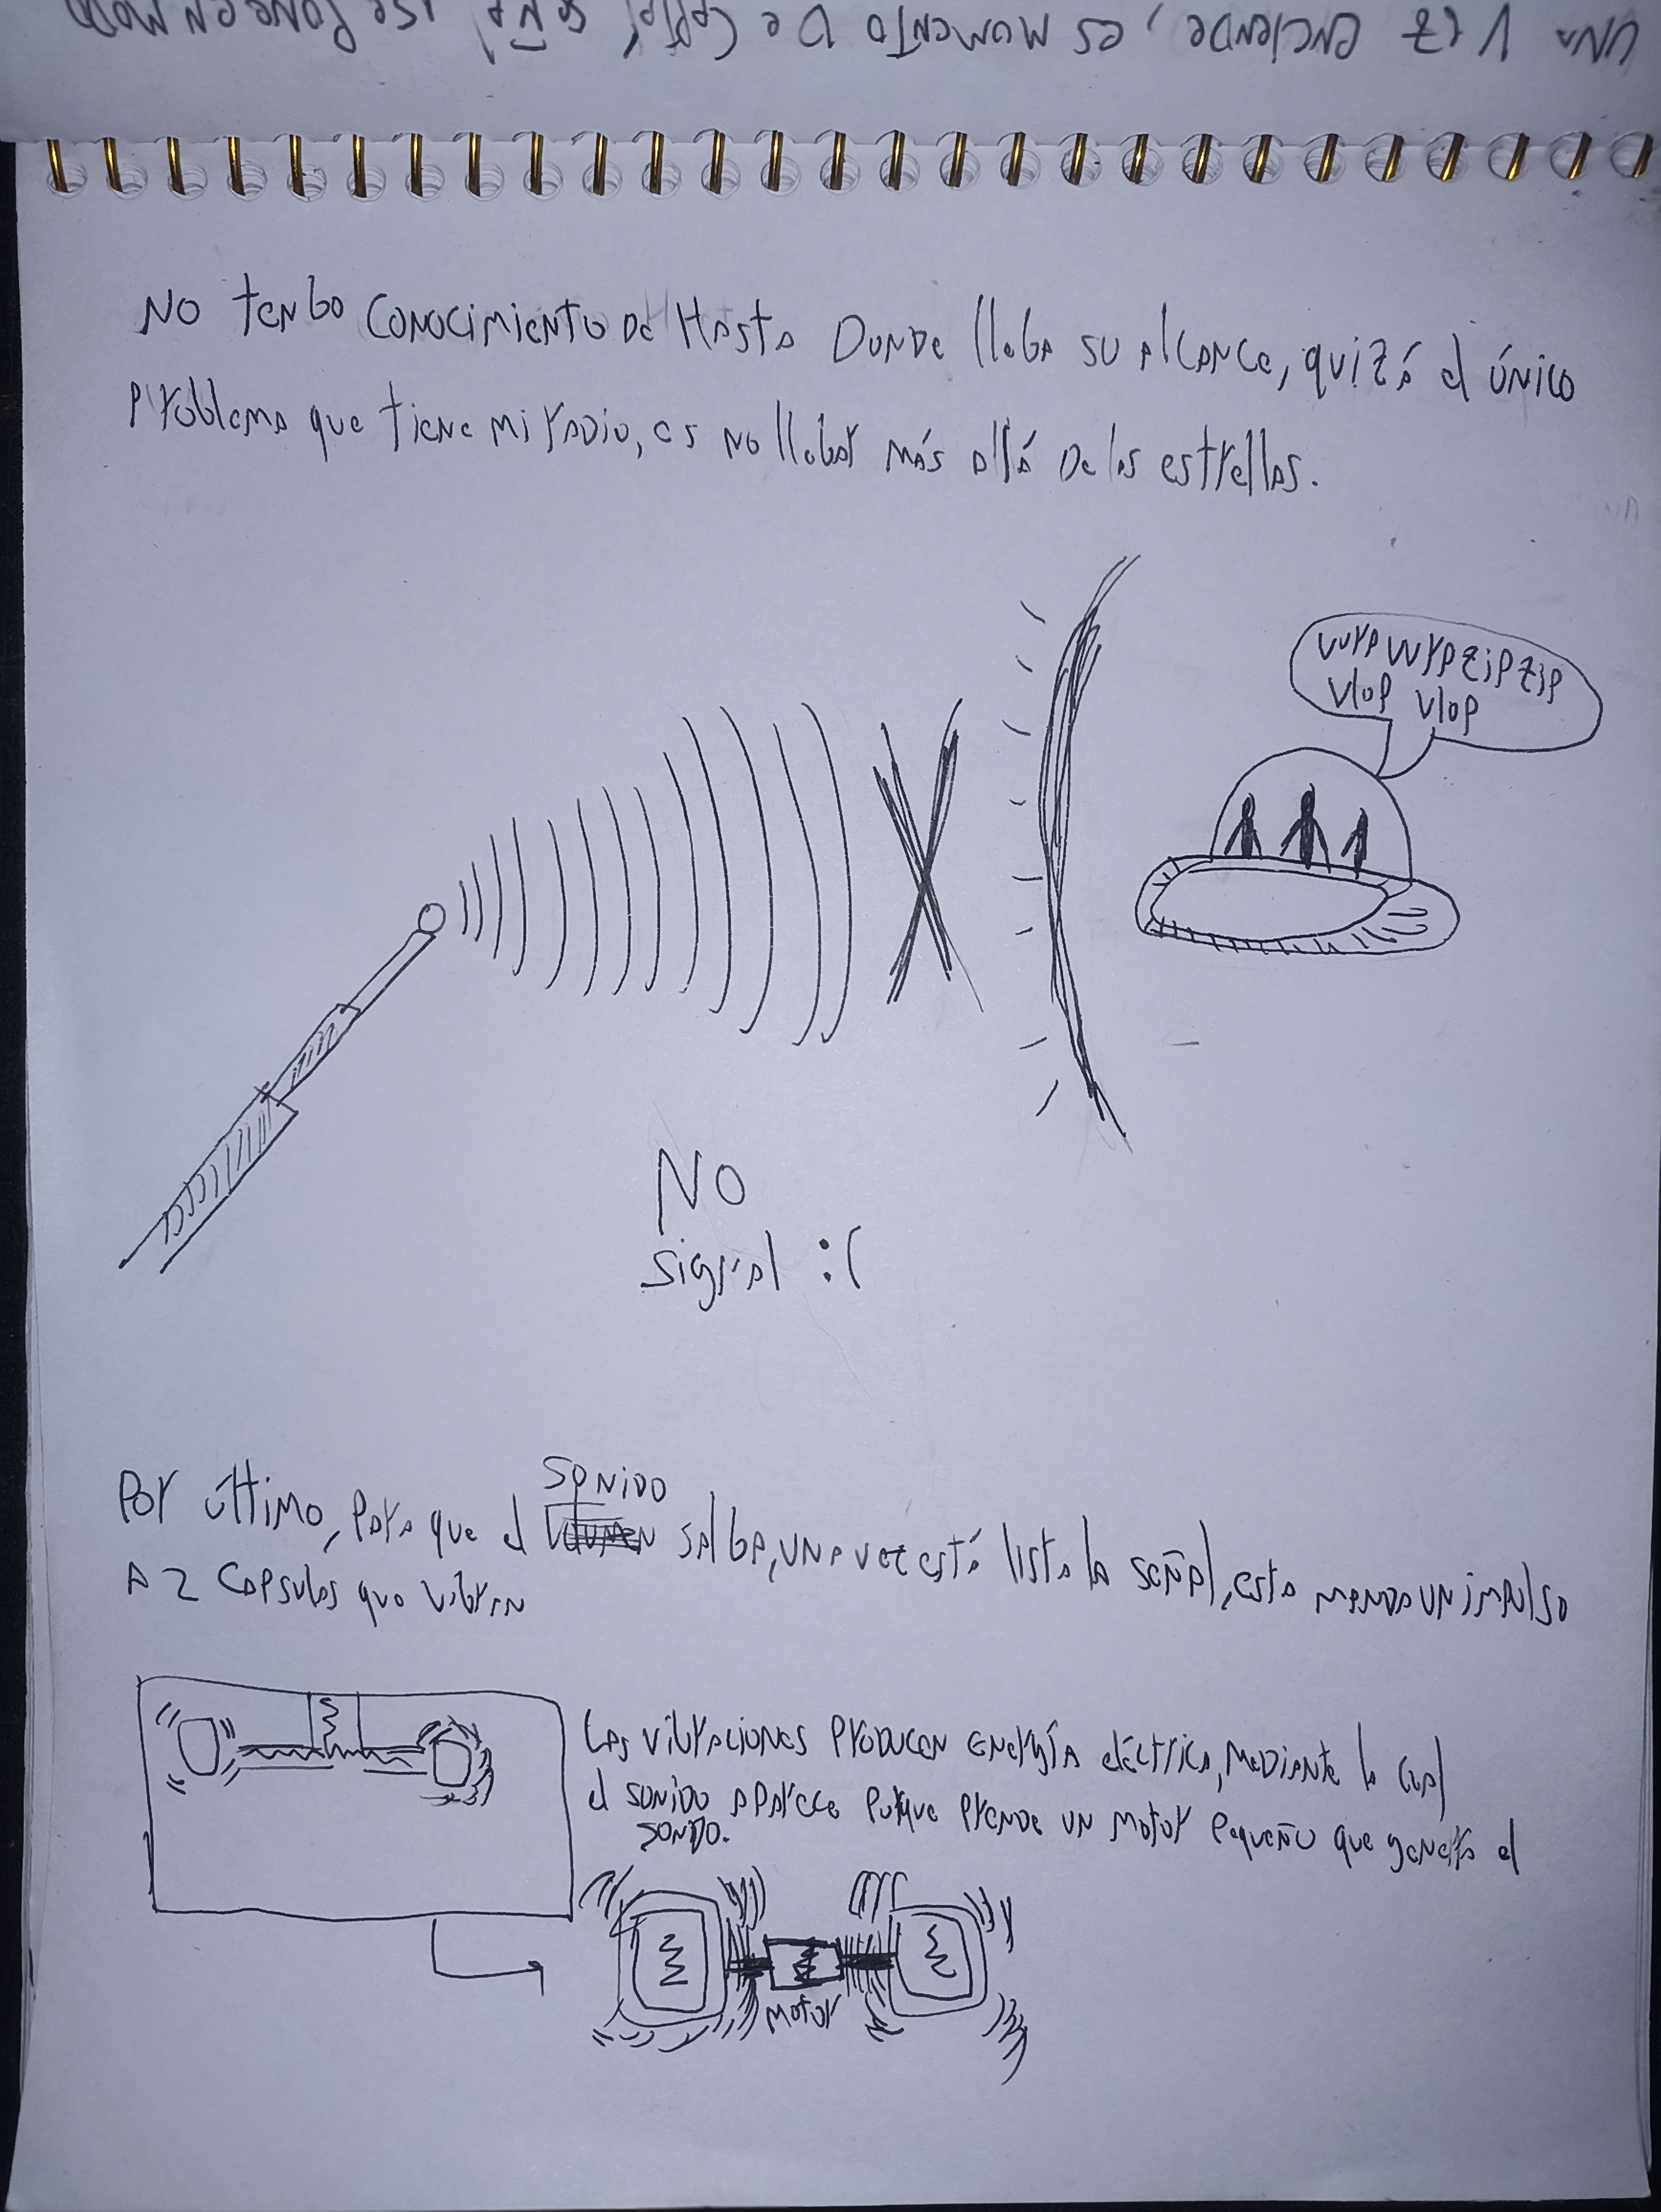 UNA VEZ ENCIENDE, ES MOMENTO De CAPTAR SEÑAL, se PONE EN MODO
NO tengo CONOCIMIENTO De HASTA DONDe llega SU ALCANCe, quiZá el único
problema que tiene mi radio, es no llegar más allá De las estrellas.
vvrp vvrp zip zip
vlop vlop
NO
signal :(
SONIDO
Por último, para que el VOLUMEN salga, una vez está lista la señal, esta manda un impulso
A 2 CAPSULAS que vibran
Las vibraciones PRODUCEN ENergía eléctrica, meDiante la cual
el SONIDO aparece porque prende un motor pequeño que genera el
SONIDO.
motor